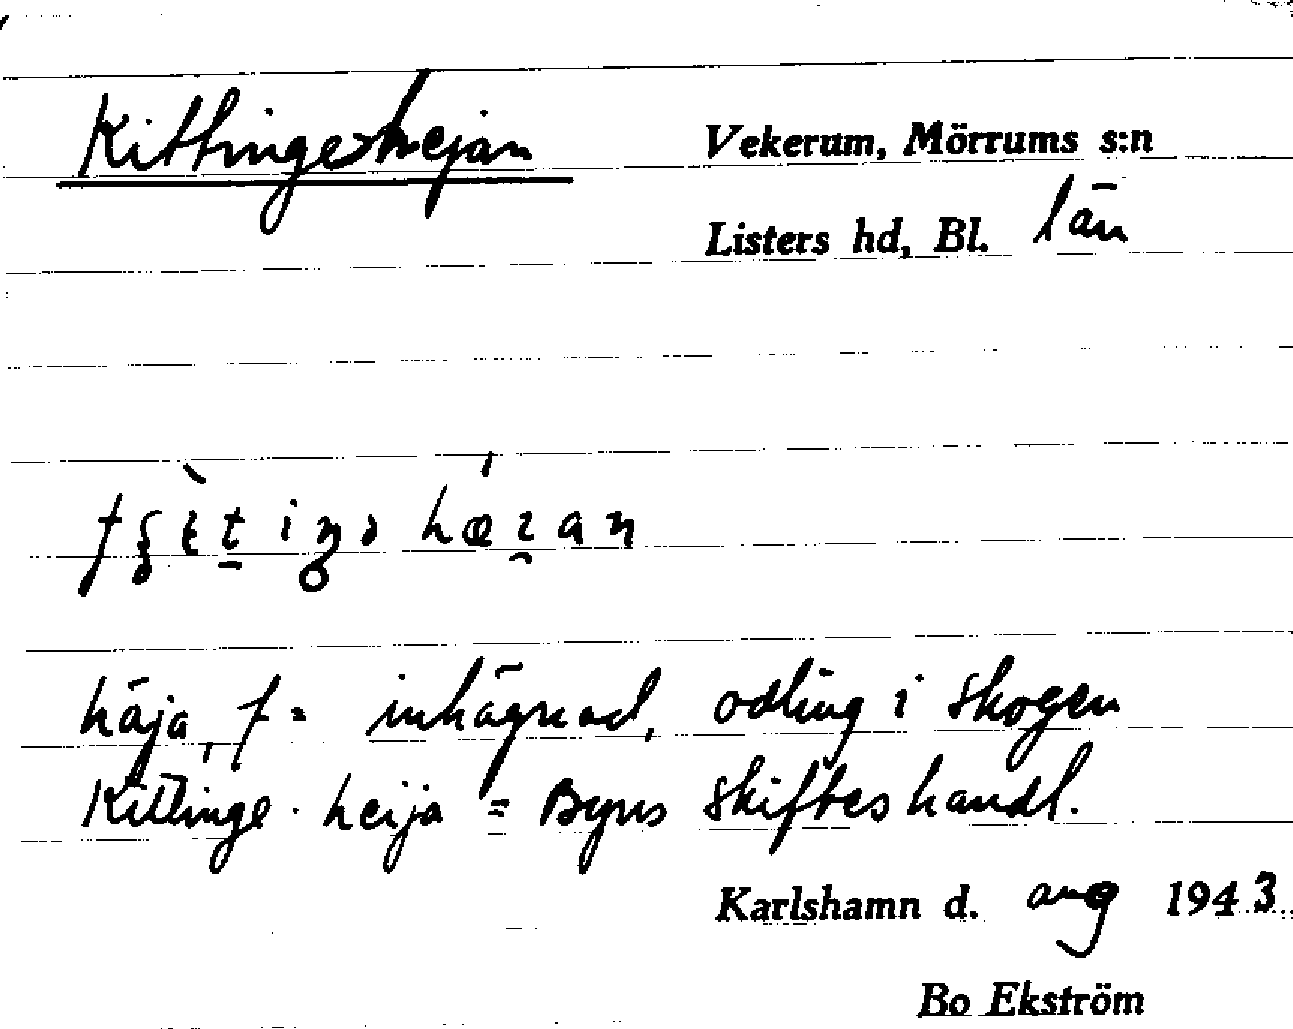 Kittingehejan
Vekerum, Mörrums s:n
Listers hd, Bl. län
häja, f = inhägnad, odling i skogen
Kittinge-heija = Byns skifteshandl.
Karlshamn d. aug 1943
Bo Ekström